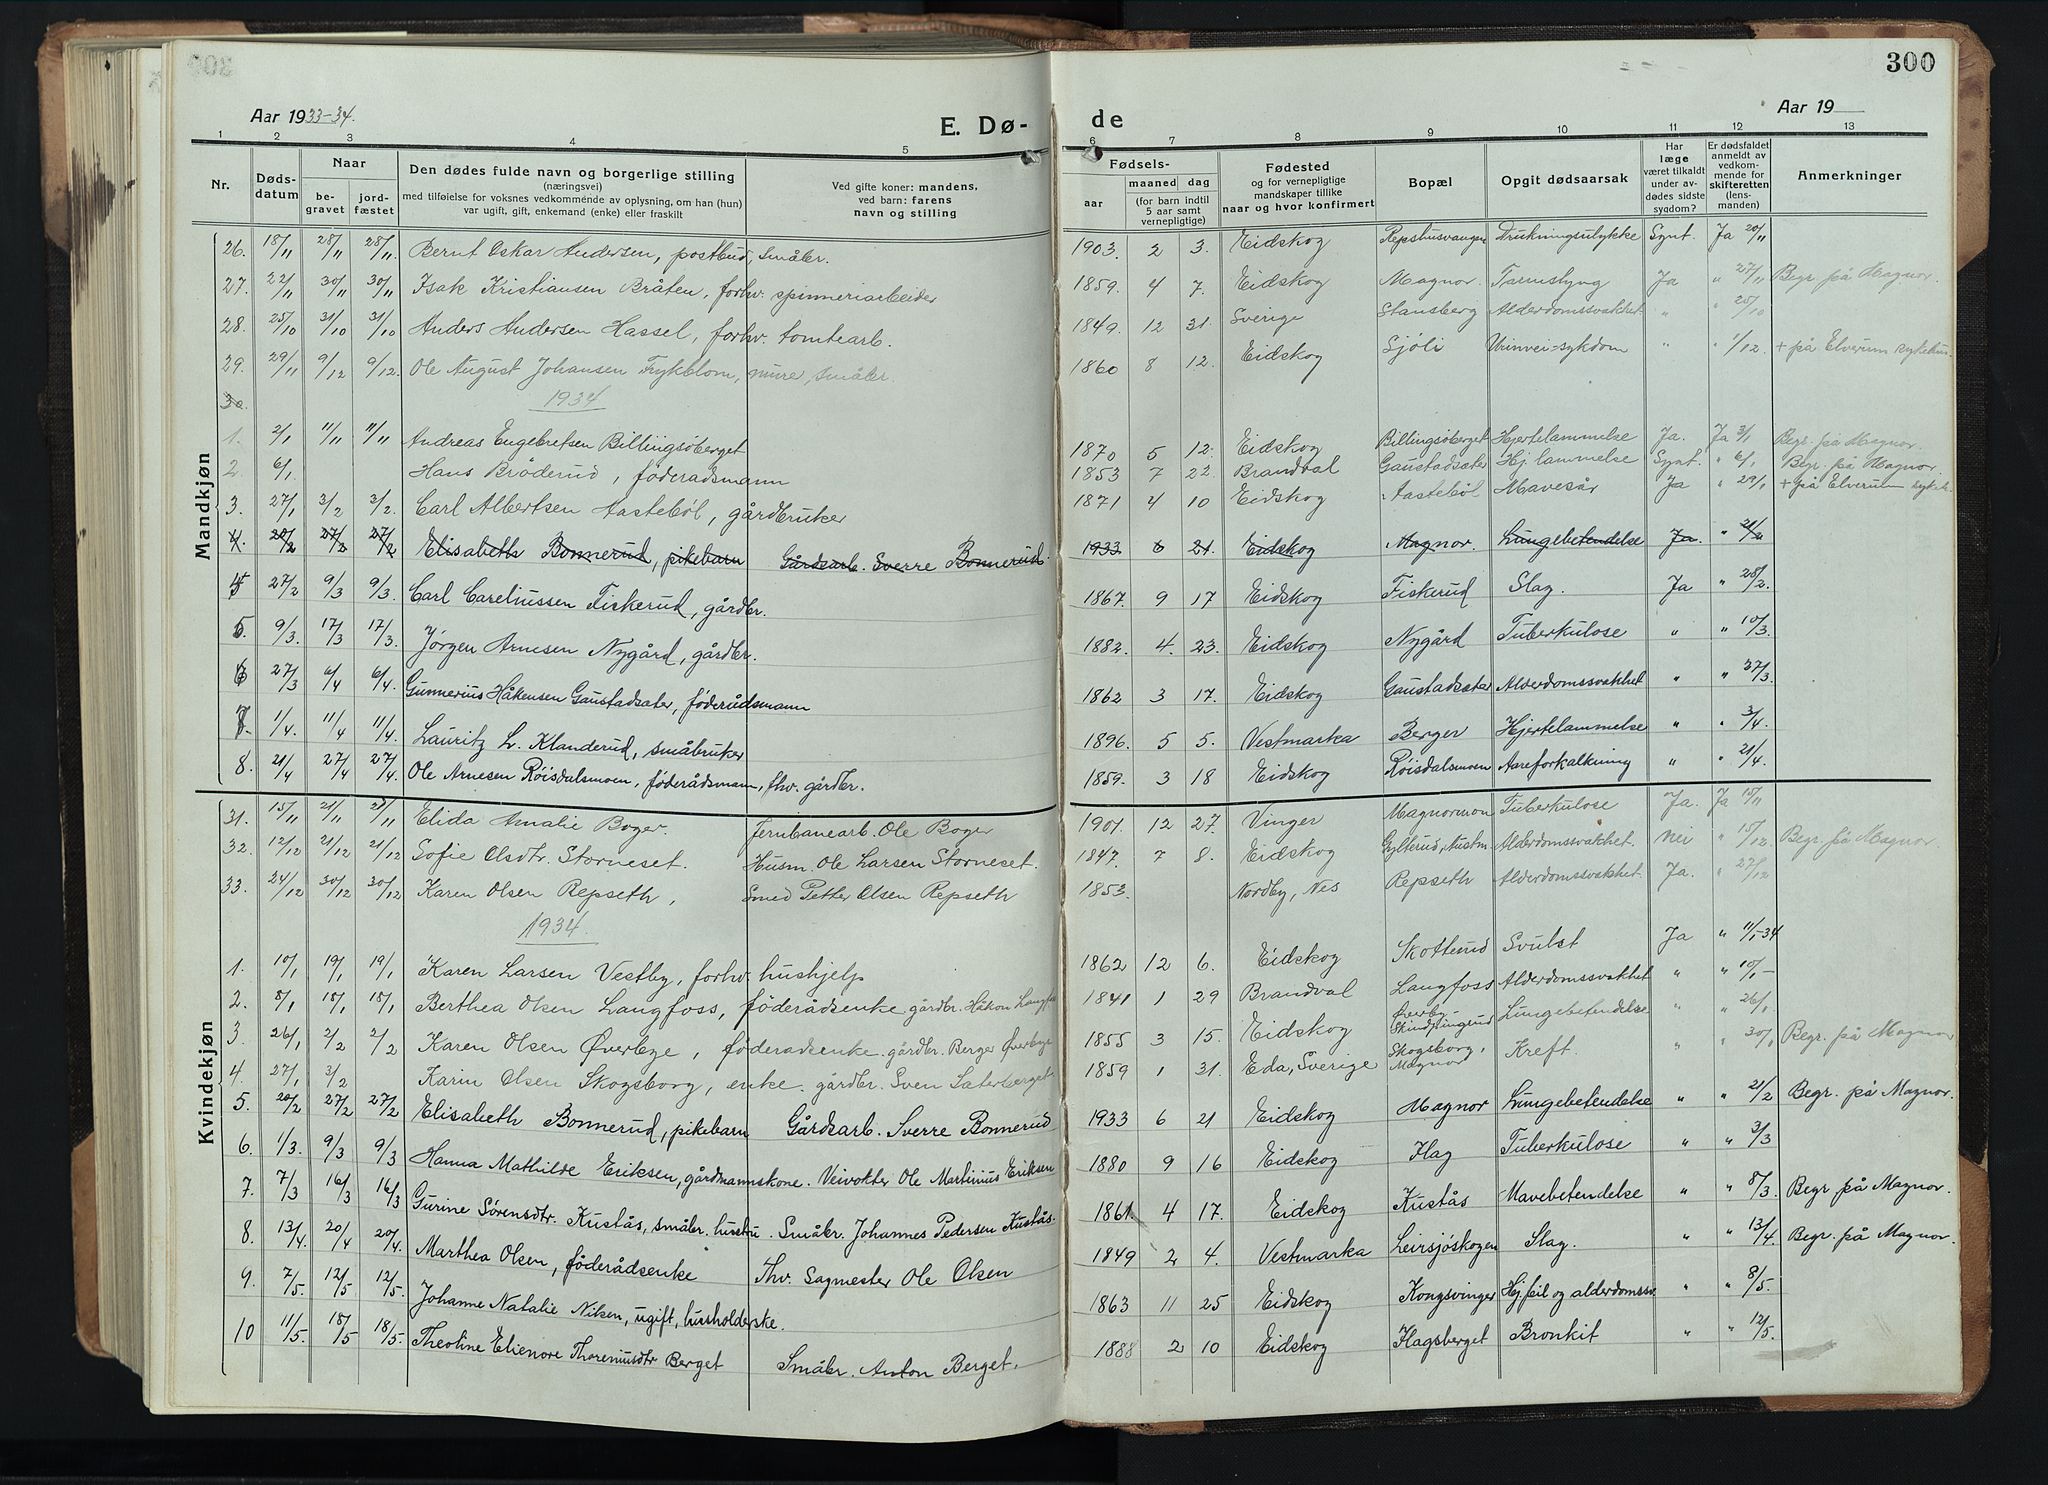 300
Aar 1933-34.
E. Dø-
de
Aar 19
1 2 3 4 5 6 7 8 9 10 11 12 13
Nr.
Døds-
datum
Naar
be-
gravet
jord-
fæstet
Den dødes fulde navn og borgerlige stilling
(næringsvei)
med tilføielse for voksnes vedkommende av oplysning, om han (hun)
var ugift, gift, enkemand (enke) eller fraskilt
Ved gifte koner: mandens,
ved barn: farens
navn og stilling
Fødsels-
aar
maaned dag
(for barn indtil
5 aar samt
vernepligtige)
Fødested
og for vernepligtige
mandskaper tillike
naar og hvor konfirmert
Bopæl
Opgit dødsaarsak
Har
læge
været tilkaldt
under av-
dødes sidste
sygdom?
Er dødsfaldet
anmeldt av
vedkom-
mende for
skifteretten
(lens-
manden)
Anmerkninger
Mandkjøn
26. 18/11 28/11 28/11 Bernt Oskar Andersen, postbud, småbr. 1903. 2 3. Eidskog Repshusvangen Drukningsulykke Synt. Ja 20/11
27. 22/11 30/11 30/11 Isak Kristiansen Bråten, forhv. spinneriarbeider 1859. 4 7. Eidskog Magnor. Tarmslyng Ja " 27/11 Begr. på Magnor.
28. 25/10 31/10 31/10 Anders Andersen Hassel, forhv. tomtearb. 1849. 12 31. Sverige Stansberg Alderdomssvakhet " " 25/10
29. 29/11 9/12 9/12. Ole August Johansen Frykblom, murer, småbr. 1860 8 12. Eidskog Sjøli Urinvei-sykdom " " 1/12. + på Elverum sykehus.
30.
1934
1. 2/1 11/11 11/11 Andreas Engebretsen Billingsøberget 1870 5 12. Eidskog Billingsøberget Hjertelammelse Ja. Ja 3/1 Begr. på Magnor.
2. 6/1 Hans Bröderud, föderadsmann 1853 7 22. Brandval Gaustadsæter Hj. lammelse Synt. " 6/1 Begr. på Magnor.
3. 27/1 3/2 3/2. Carl Albertsen Aastebøl, gårdbruker 1871 4 10 Eidskog Aastebøl Mavesår Ja " 29/1 + på Elverum sykeh.
4. 20/2 27/2 27/2 Elisabeth Bonnerud, pikebarn Gårdsarb. Sverre Bonnerud. 1933 6 21. Eidskog Magnor. Lungebetendelse Ja. " 21/2
4 27/2 9/3 9/3. Carl Careliussen Fiskerud, gårdbr. 1867. 9 17 Eidskog Fiskerud Slag. Ja " 28/2.
5. 9/3. 17/3 17/3. Jørgen Arnesen Nygård, gårdbr. 1882. 4. 23. Eidskog Nygård Tuberkulose " " 10/3.
6 27/3 6/4 6/4. Gunnerius Håkensen Gaustadsæter, föderådsmann 1862 3 17. Eidskog Gaustadsæter Alderdomssvakhet " " 27/3.
7. 1/4. 11/4 11/4. Lauritz L. Klanderud, småbruker 1896. 5 5. Vestmarka Berger Hjertelammelse " " 3/4.
8. 21/4 27/4 27/4. Ole Arnesen Röisdalsmoen, föderådsmann, fhv. gårdbr. 1859. 3 18 Eidskog Röisdalsmoen Aareforkalkning " " 21/4.
Kvindekjøn
31. 15/11 21/11 21/11 Elida Amalie Boger. Jernbanearb. Ole Boger 1901. 12 27. Vinger Magnormon Tuberkulose Ja. Ja 15/11
32. 12/12 21/12 21/12 Sofie Olsdtr. Storneset. Husm. Ole Larsen Storneset. 1847. 7 8. Eidskog Gylterud, Austm. Alderdomssvakhet. Nei " 15/12 Begr. på Magnor.
33. 24/12 30/12 30/12 Karen Olsen Repseth, Smed Petter Olsen Repseth 1853. Nordby, Nes Repseth Alderdomssvakhet. Ja. " 27/12
1934.
1. 10/1 19/1 19/1 Karen Larsen Vestby, forhv. hushjelp 1862 12 6. Eidskog Skotterud Svulst Ja " 11/1-34
2. 8/1 18/1 18/1 Berthea Olsen Langfoss, föderådsenke gårdbr. Håkon Langfoss 1841 1 29 Brandval Langfoss Alderdomssvakhet " " 10/1-
3. 26/1 2/2 2/2 Karen Olsen Øverbye, föderadsenke. gårdbr. Berger Øverbye 1855 3 15. Eidskog Øverby- Lungebetendelse " " 26/1
4. 27/1 3/2 Karin Olsen Skogsborg, enke. gårdbr. Sven Säterberget 1859 1 31. Eda, Sverige Skogsborg, Magnor Kreft. " " 30/1 Begr. på Magnor
5. 20/2 27/2 27/2 Elisabeth Bonnerud, pikebarn Gårdsarb. Sverre Bonnerud 1933 6 21 Eidskog Magnor Lungebetendelse " " 21/2 Begr. på Magnor.
6. 1/3. 9/3 9/3 Hanna Mathilde Eriksen, gårdmannskone. Veivokter Ole Martinius Eriksen 1880 9 16 Eidskog Flag Tuberkulose " " 3/3
7. 7/3 16/3 16/3 Gurine Sørensdtr. Kustås, småbr. hustru. Småbr. Johannes Pedersen Kustås. 1861. 4 17. Eidskog Kustås Mavebetendelse " " 8/3. Begr på Magnor.
8. 13/4. 20/4 20/4. Marthea Olsen, föderådsenke Fhv. Sagmester Ole Olsen 1849 2 4. Vestmarka Leirsjöskogen Slag. " " 13/4 Begr. på Magnor.
9. 7/5. 12/5 12/5. Johanne Natalie Nilsen, ugift, husholderske. 1863 11 25 Eidskog Kongsvinger Hj. feil og alderdomssv. " " 8/5.
10 11/5. 18/5 18/5. Theoline Elienore Thoreniusdtr Berget Småbr. Anton Berget. 1888 2 10 Eidskog Flagsberget Bronkit " " 12/5.